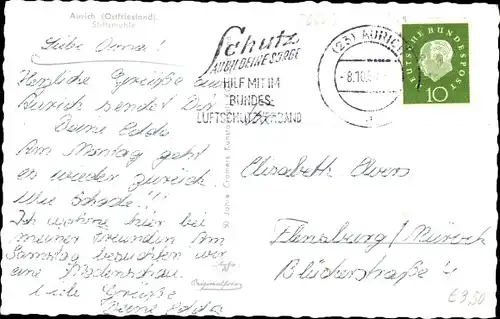 Aurich (Ostfriesland).
Stiftsmühle
Liebe Oma!
Herzliche Grüße aus
Aurich sendet Dir
Deine Edda
Am Montag geht
es wieder zurück.
Wie Schade!!!
Ich wohne hier bei
meiner Freundin. Am
Samstag besuchten wir
eine Modenschau.
Viele Grüße
Deine Edda
50 Jahre Cramers Kunstanstalt
Originalfoto
Schutz
AUCH DEINE SORGE
HILF MIT IM
BUNDES-
LUFTSCHUTZVERBAND
(23) AURICH
- 8.10.
DEUTSCHE BUNDESPOST
10
Elisabeth
Flensburg / Mürwik
Blücherstraße 4
€ 3,50